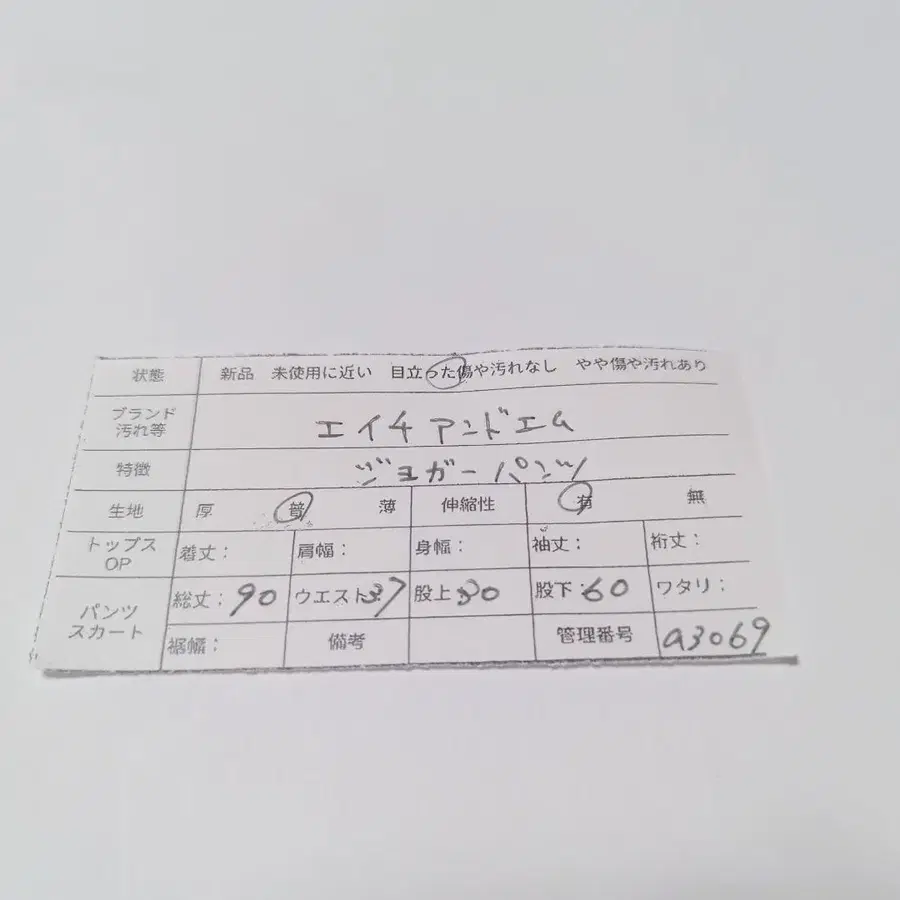 状態 新品 未使用に近い 目立った傷や汚れなし やや傷や汚れあり
ブランド
汚れ等 エイチアンドエム
特徴 ジョガーパンツ
生地 厚 普 薄 伸縮性 有 無
トップス
OP 着丈： 肩幅： 身幅： 袖丈： 裄丈：
パンツ
スカート 総丈：90 ウエスト：37 股上：30 股下：60 ワタリ：
裾幅： 備考 管理番号 a3069